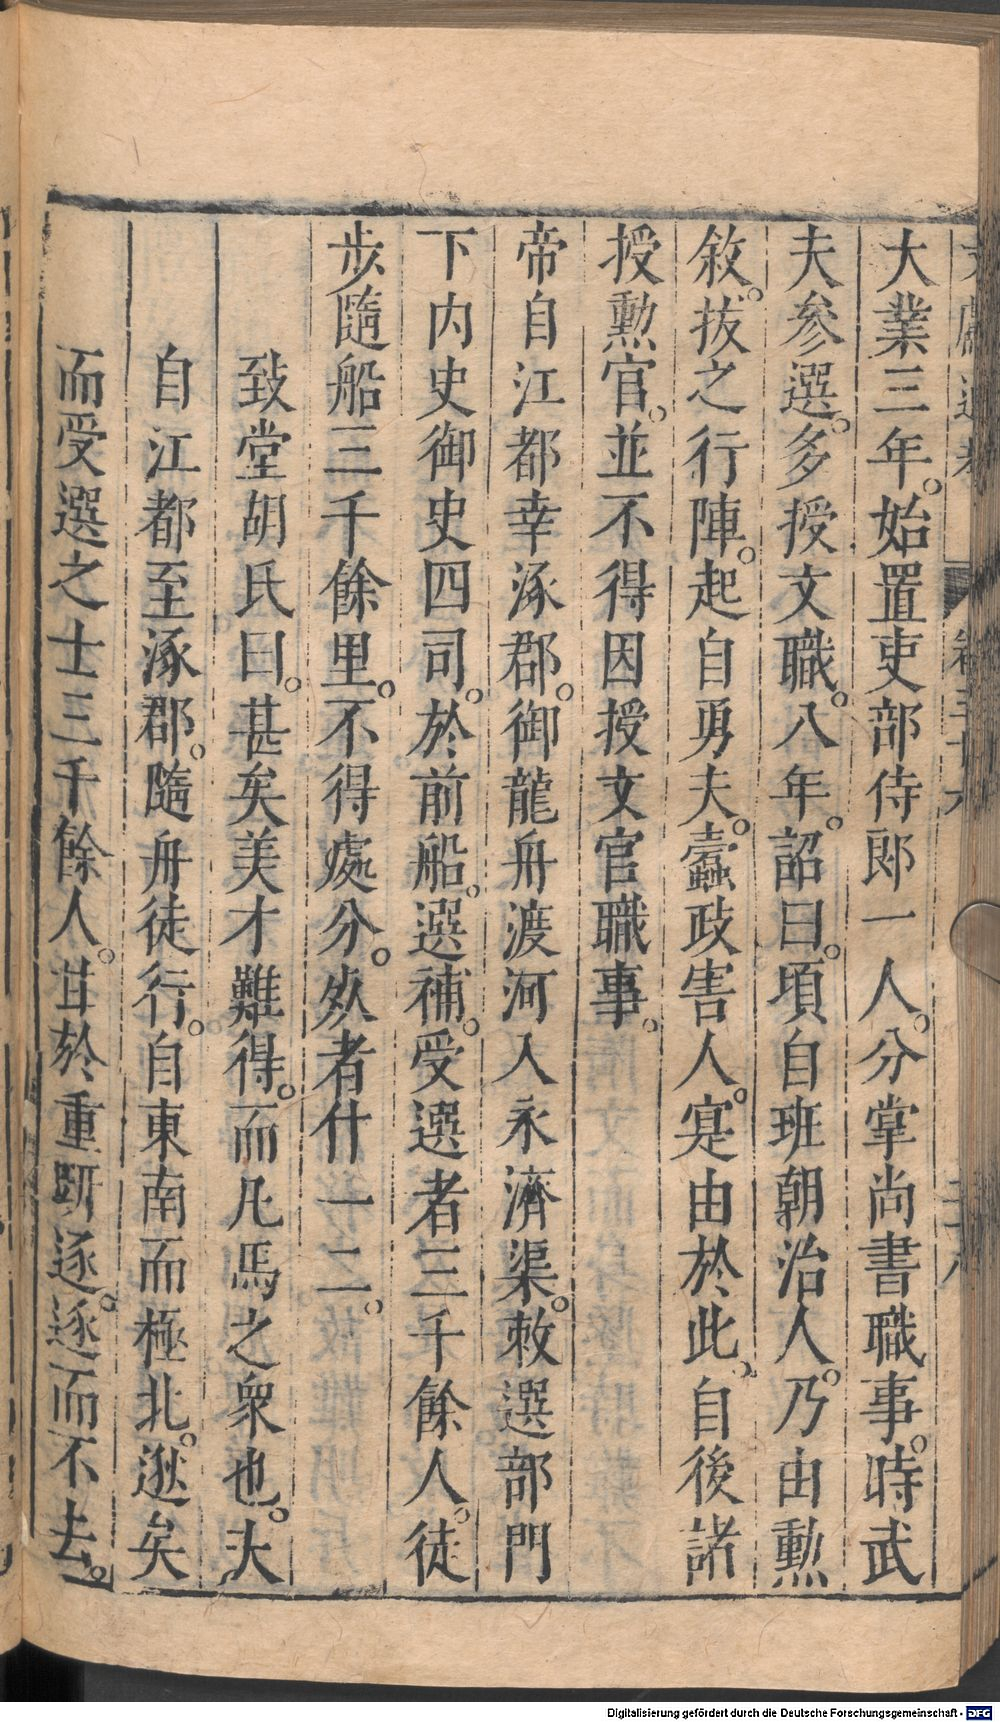 大業三年。始置吏部侍郎一人。分掌尚書職事。時武
夫參選。多授文職。八年。詔曰。頃自班朝治人。乃由勲
敘。拔之行陣。起自勇夫。蠧政害人。寔由於此。自後諸
授勲官。並不得因授文官職事。
帝自江都幸涿郡。御龍舟渡河入永濟渠。敕選部門
下内史御史四司。於前船。選補。受選者三千餘人。徒
步隨船三千餘里。不得處分。死者什一二。
致堂胡氏曰。甚矣美才難得。而凡馬之衆也。夫
自江都至涿郡。隨舟徒行。自東南而極北。逖矣
而受選之士三千餘人。甘於重趼逐。逐而不去。
Digitalisierung gefördert durch die Deutsche Forschungsgemeinschaft - DFG